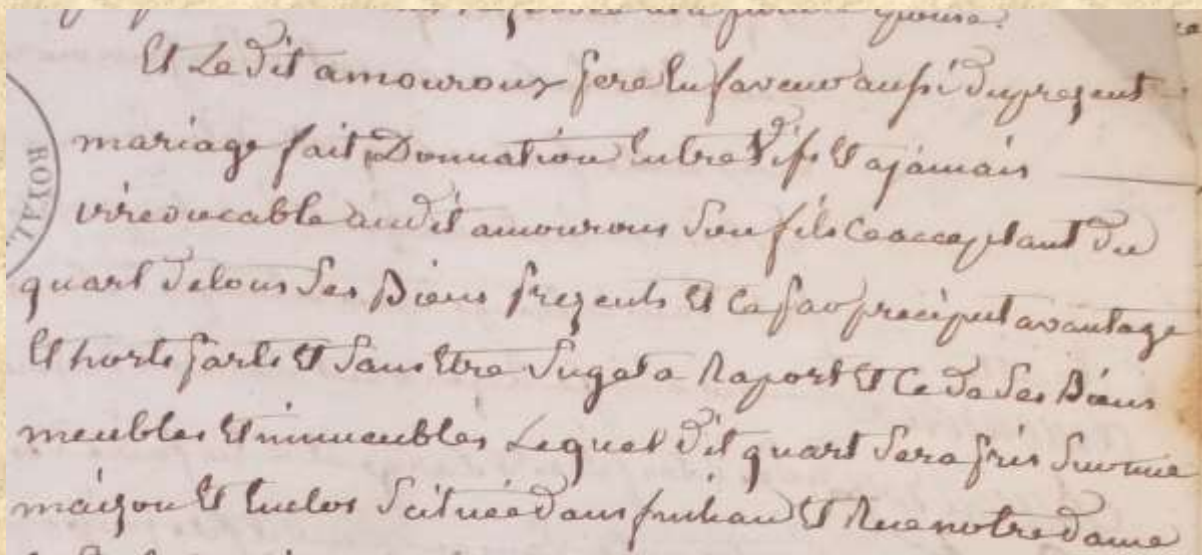 future Epouse.
Et Le dit amouroux pere En faveur aussi du present
mariage fait Donnation Entre Vifs Et ajamais
irrevocable audit amouroux Son fils Ce acceptant du
quart detous Ses Biens prezents Et Ce par preciput avantage
Et horts parts Et Sans Etre Suget a Raport Et Ce de Ses Biens
meubles Et immeubles Lequel dit quart Sera pris Sur une
maizon Et Enclos Scituée dans Et Rue notre dame
ROYAL